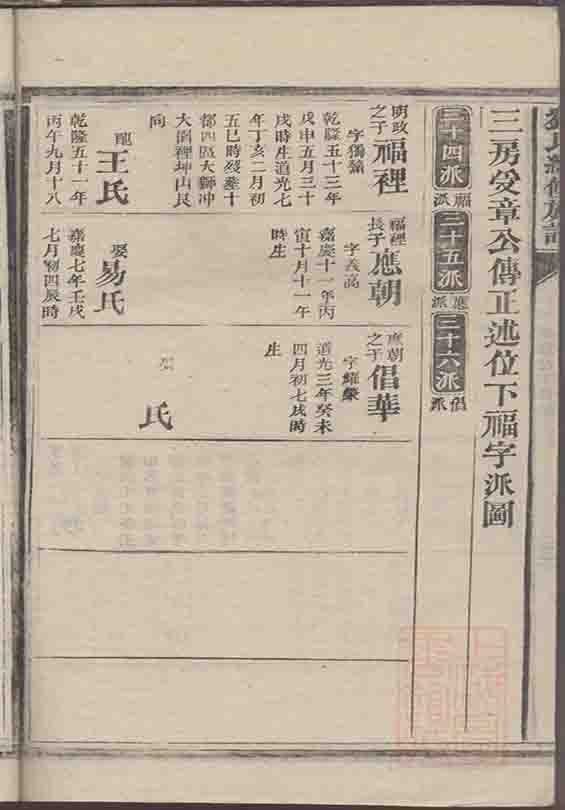 三房受章公傳正述位下福字派圖
三十四派 福派
三十五派 應派
三十六派 倡派
明政之子 福裡
字獨
乾隆五十三年
戊申五月三十
戌時生道光七
年丁亥二月初
五巳時歿葬十
都四區大獅冲
大倒裡坤山艮
向
配 王氏
乾隆五十一年
丙午九月十八
福裡長子 應朝
字義高
嘉慶十一年丙
寅十月十一午
時生
娶 易氏
嘉慶七年壬戌
七月初四辰時
應朝之子 倡華
字耀
道光三年癸未
四月初七戌時
生
氏